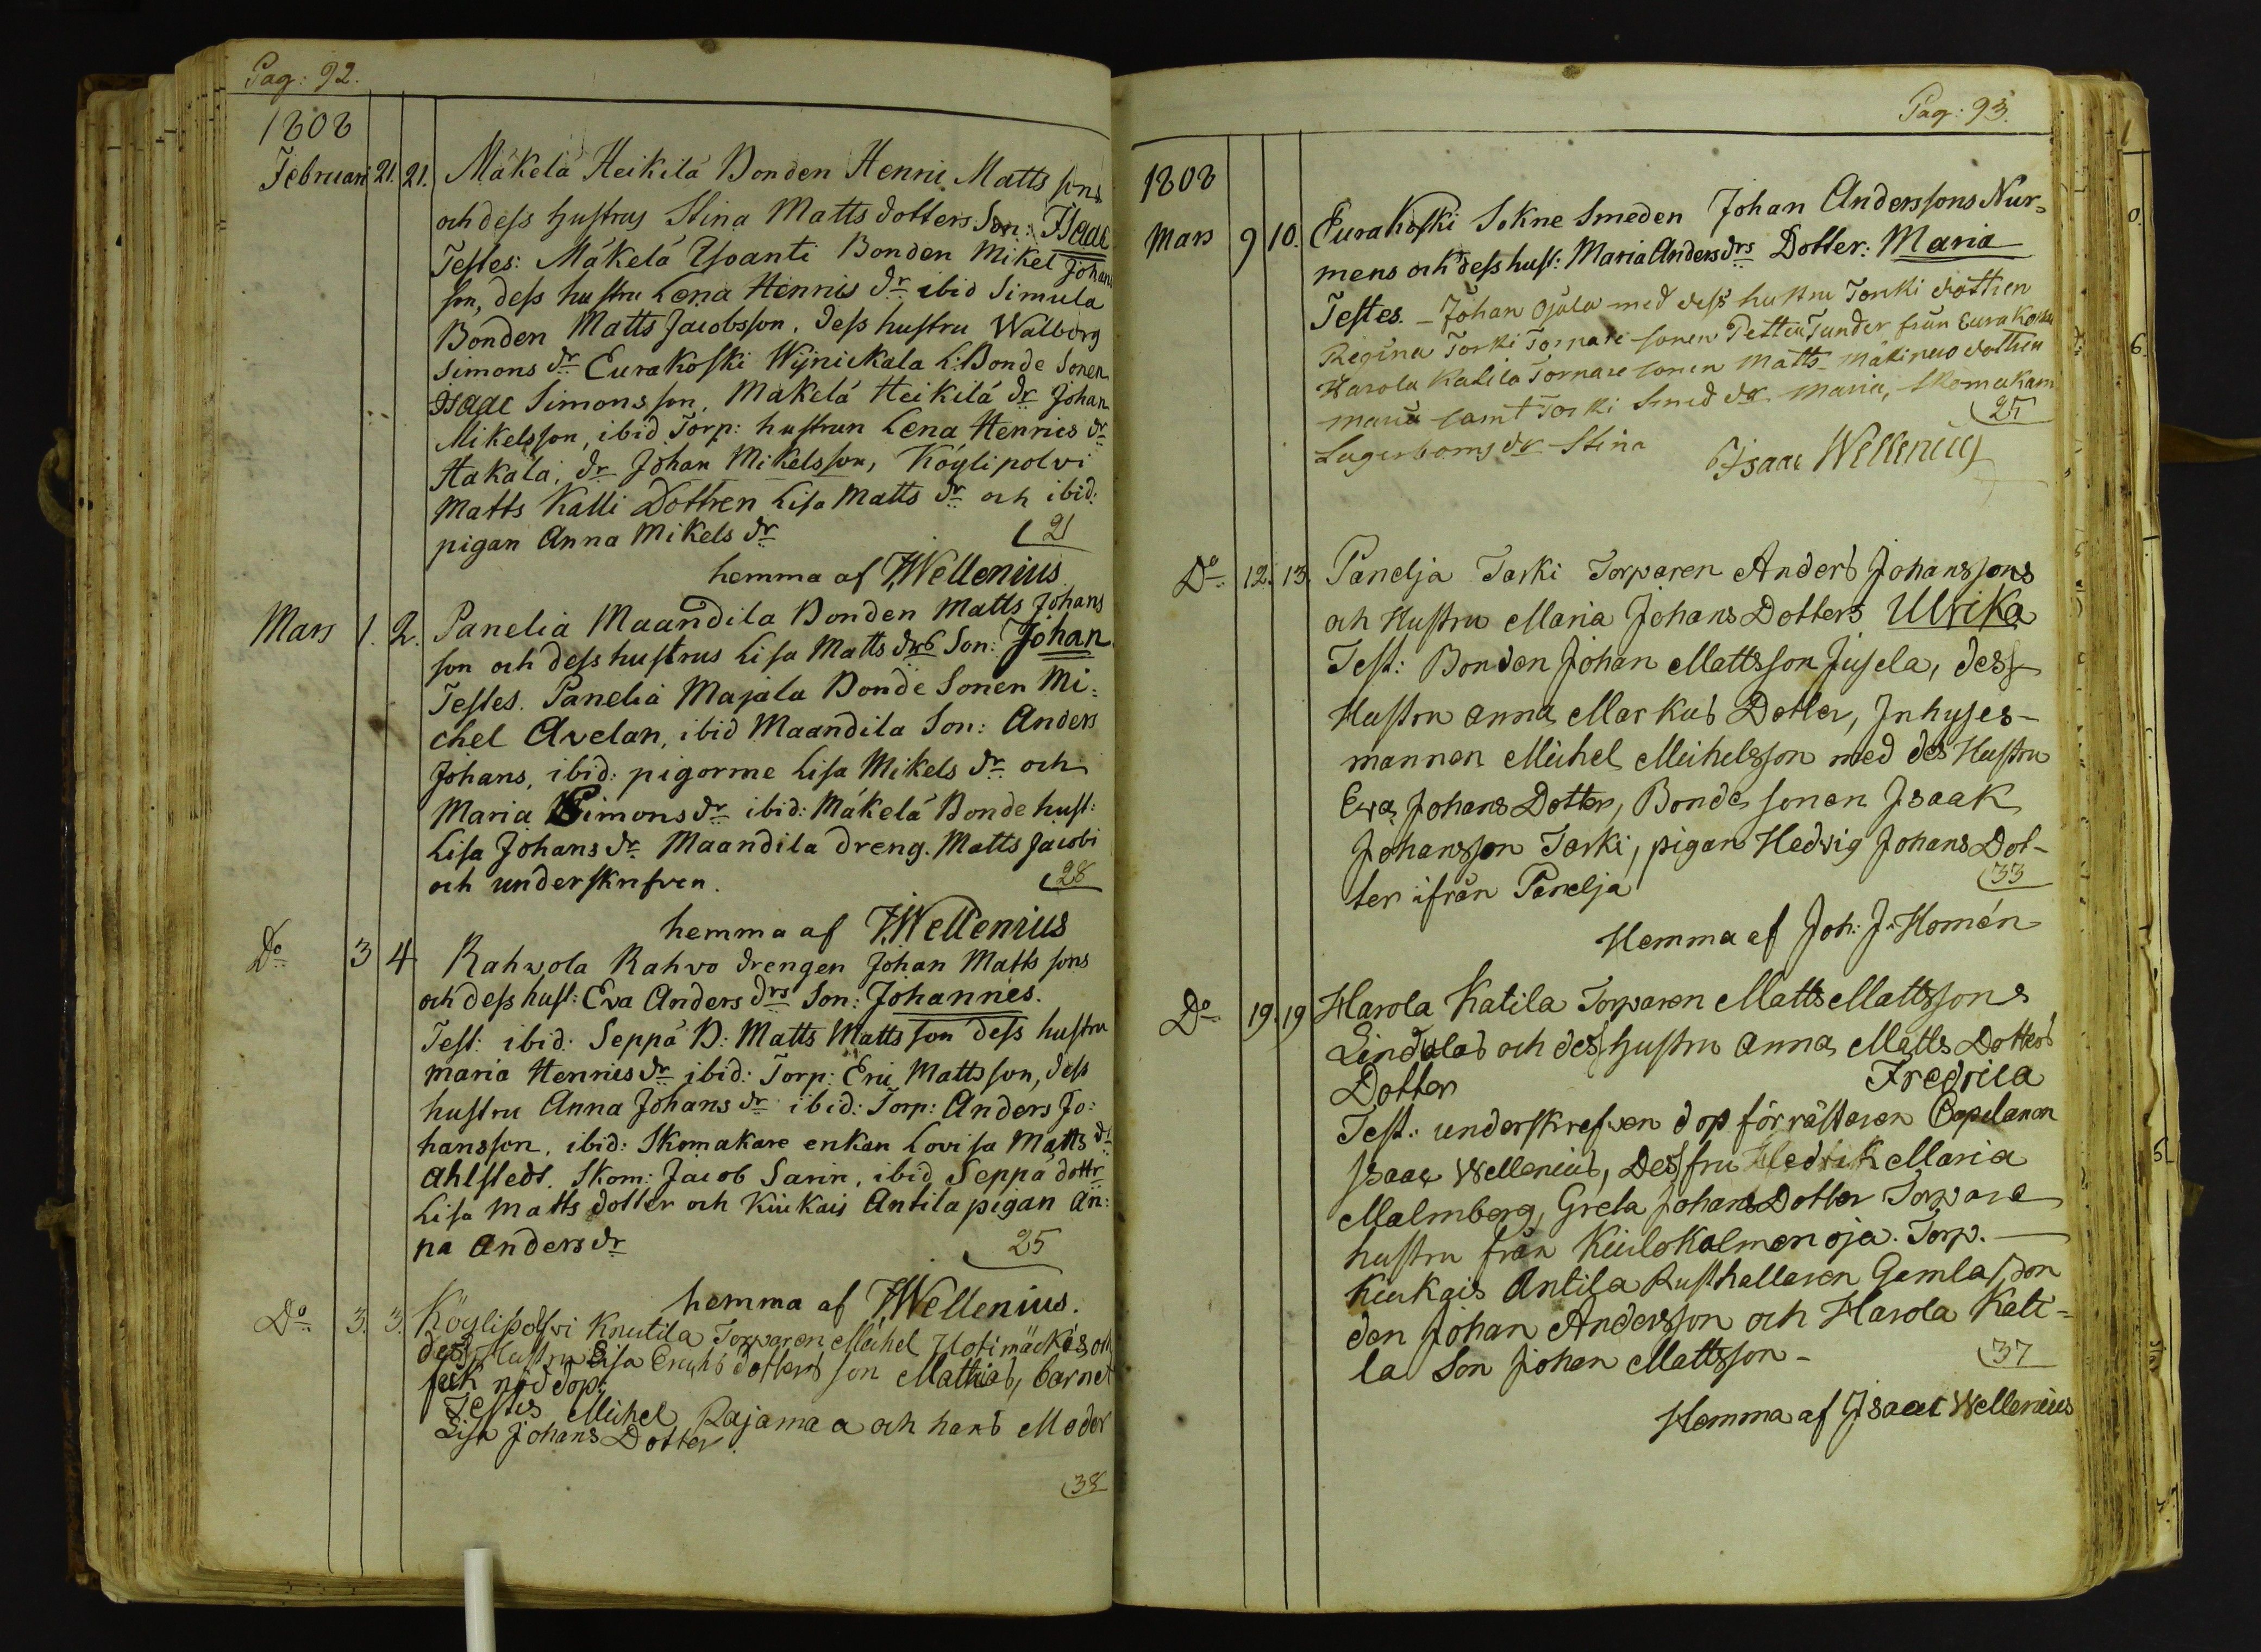 Pag: 92.
1808
Februari 21. 21. Mäkelä Heikilä Bonden Henric Matts sons
och dess hustrus Stina Matts dotters Son: Isaac
Testes: Mäkelä Ysoanti Bonden Mikel Johans
son, dess hustru Lena Henrics dr ibid Simula
Bonden Matts Jacobsson, dess hustru Walborg
Simons dr Eurakoski Wijnickala L: Bonde Sonen
Isaac Simonsson, Mäkelä Heikilä dr Johan
Mikelsson, ibid Torp: hustrun Lena Henrics dr
Hakala, dr Johan Mikelsson, Köylipolvi
Matts Kalli Dottren Lisa Matts dr och ibid:
pigan Anna Mikels dr (21
hemma af I.Wellenius
Mars 1. 2. Panelia Maandila Bonden Matts Johans
son och dess hustrus Lisa Matts drs Son: Johan
Testes. Panelia Majala Bonde Sonen Mi=
chel Avelan, ibid Maandila Son: Anders
Johans, ibid: pigorme Lisa Mikels dr och
Maria Simons dr ibid: Mäkelä Bonde hust:
Lisa Johans dr Maandila dreng. Matts Jacobi
och underskrifven. (28
hemma af I.Wellenius
Do 3 4 Rahvola Rahvo drengen Johan Matts sons
och dess hust: Eva Anders drs Son: Johannes.
Test: ibid: Seppä B: Matts Matts son dess hustru
Maria Henrics dr ibid: Torp: Eric Mattsson, dess
hustru Anna Johans dr ibid: Torp: Anders Jo=
hansson, ibid: Skomakare enkan Lovisa Matts dr
Ahlstedt. Skom: Jacob Sarin, ibid Seppä dottr
Lisa Matts dotter och Kiukais Antila pigan An:
na Anders dr 25
hemma af I.Wellenius.
Do 3. 3. Köylipolvi Knutila Torparen Michel Uotimäckis och
dess Hustru Lisa Erichs dotters son Mathias, barnet
fick nöd dop:
Testes Michel Rajamaa och hans Moder
Lisa Johans Dotter.
(38
Pag: 93.
1808
Mars 9 10. Eurakoski Sokne Smeden Johan Anderssons Nur=
mens och dess hust: Maria Anders drs Dotter: Maria
Testes. – Johan Ojala med dess hustru Torki dottren
Regina Torki Torpare sonen Petter Tunder från Eurakoski
Harola Katila Torpare sonen Matts Mäkinens dottren
Maria samt Torki Smed dr Maria, Skomakare
Lagerboms dr Stina (25
Isaac Wellenius
Do 12. 13. Panelja Tarki Torparen Anders Johanssons
och Hustru Maria Johans Dotters Ulrika
Test: Bonden Johan Mattsson Jusela, dess
Hustru Anna Markus Dotter, Inhyses-
mannen Michel Michelsson med des Hustru
Eva Johans Dotter, Bonde sonen Isaak
Johansson Torki, pigan Hedvig Johans Dot-
ter ifrån Panelja (33
Hemma af Joh: J: Homén
Do 19. 19 Harola Katila Torparen Matts Mattssons
Lindalas och dess hustru Anna Matts Dotters
Dotter Fredrica
Test: underskrefven dop förrättaren Capelanen
Isaac Wellenius, Dess fru Hedvik Maria
Malmberg, Greta Johans Dotter Torpare
hustru från Kiulokalmenoja. Torp. –
Kiukais Antila Rusthallaren Gamla,
den Johan Andersson och Harola Kati=
la Son Johan Mattsson – (37
Hemma af Isaac Wellenius